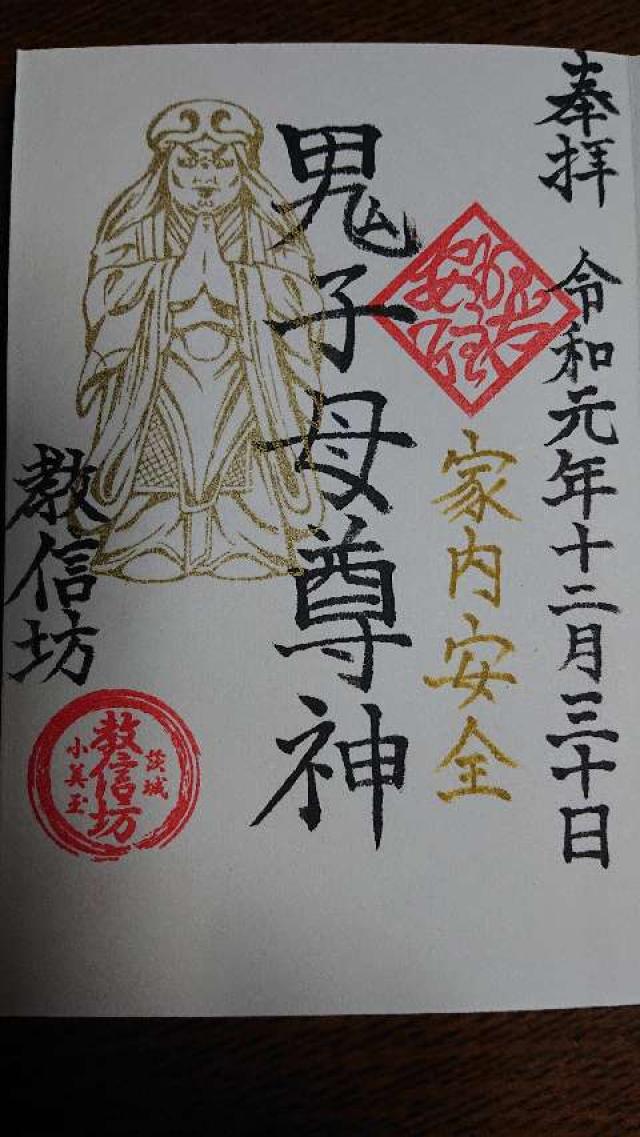 奉拝 令和元年十二月三十日
家内安全
鬼子母尊神
教信坊
茨城
教信坊
小美玉